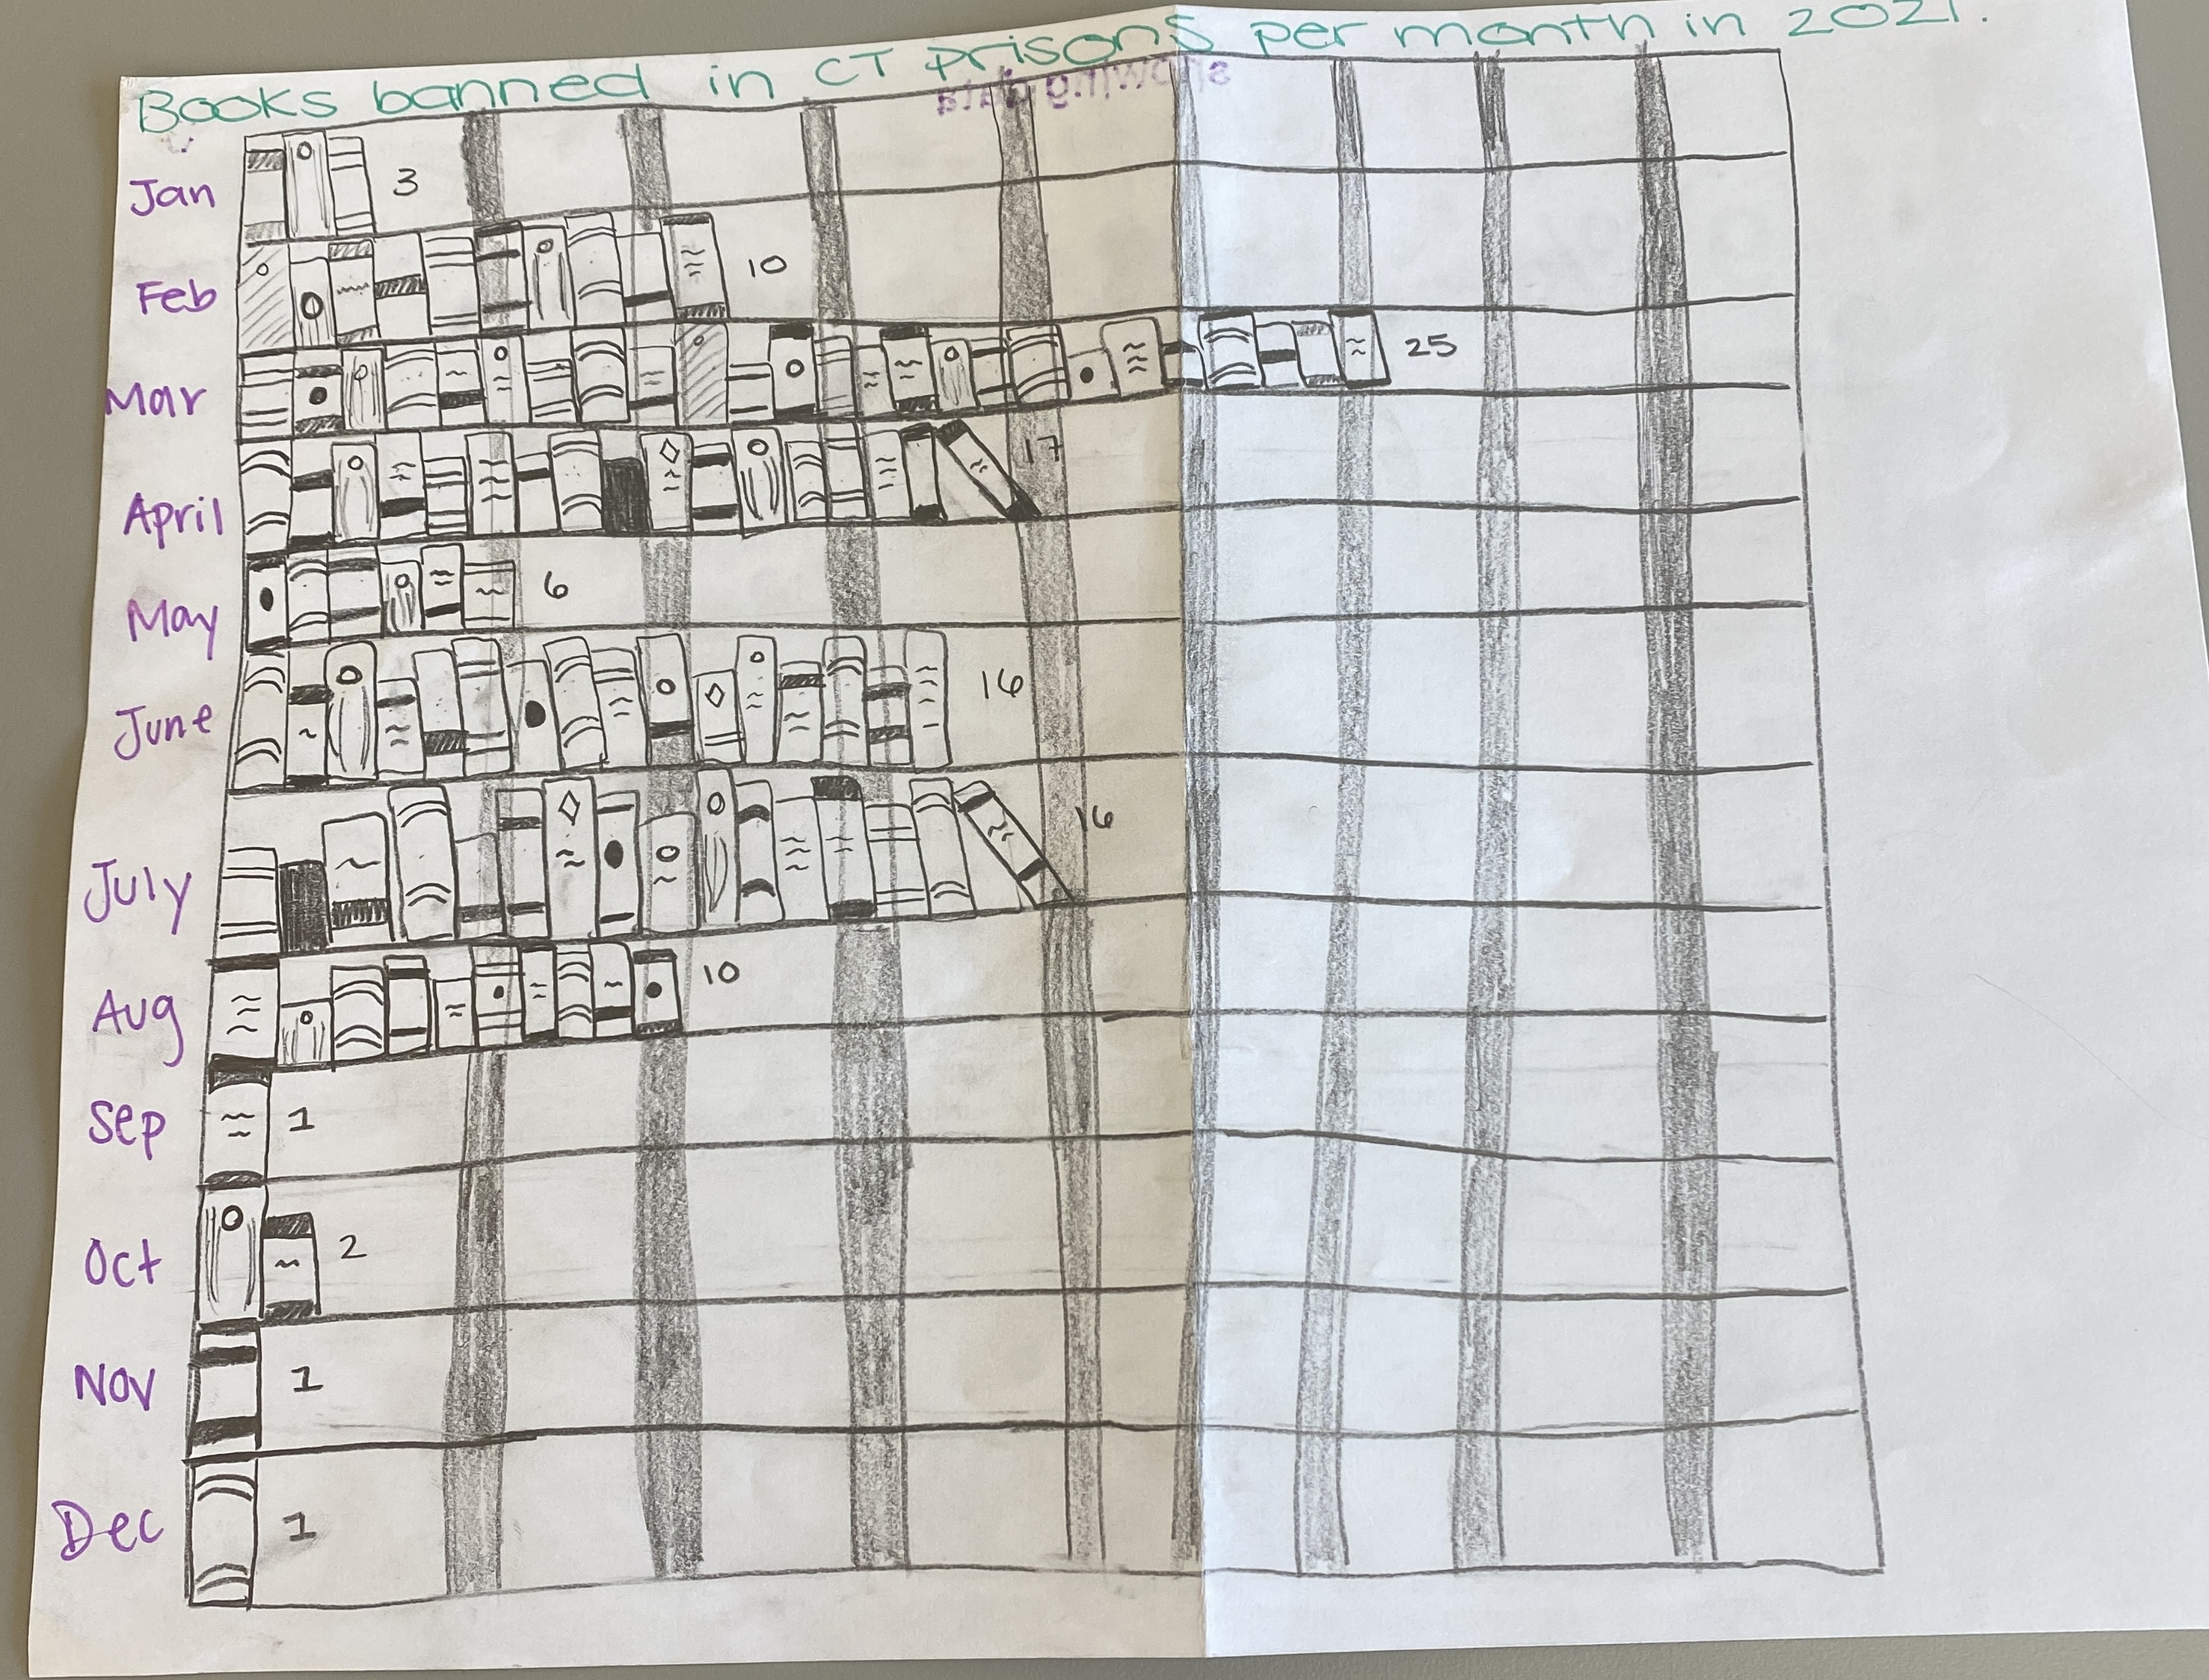 Books banned in CT prisons per month in 2021.
showing data
Jan 3
Feb 10
Mar 25
April 17
May 6
June 16
July 16
Aug 10
Sep 1
Oct 2
Nov 1
Dec 1